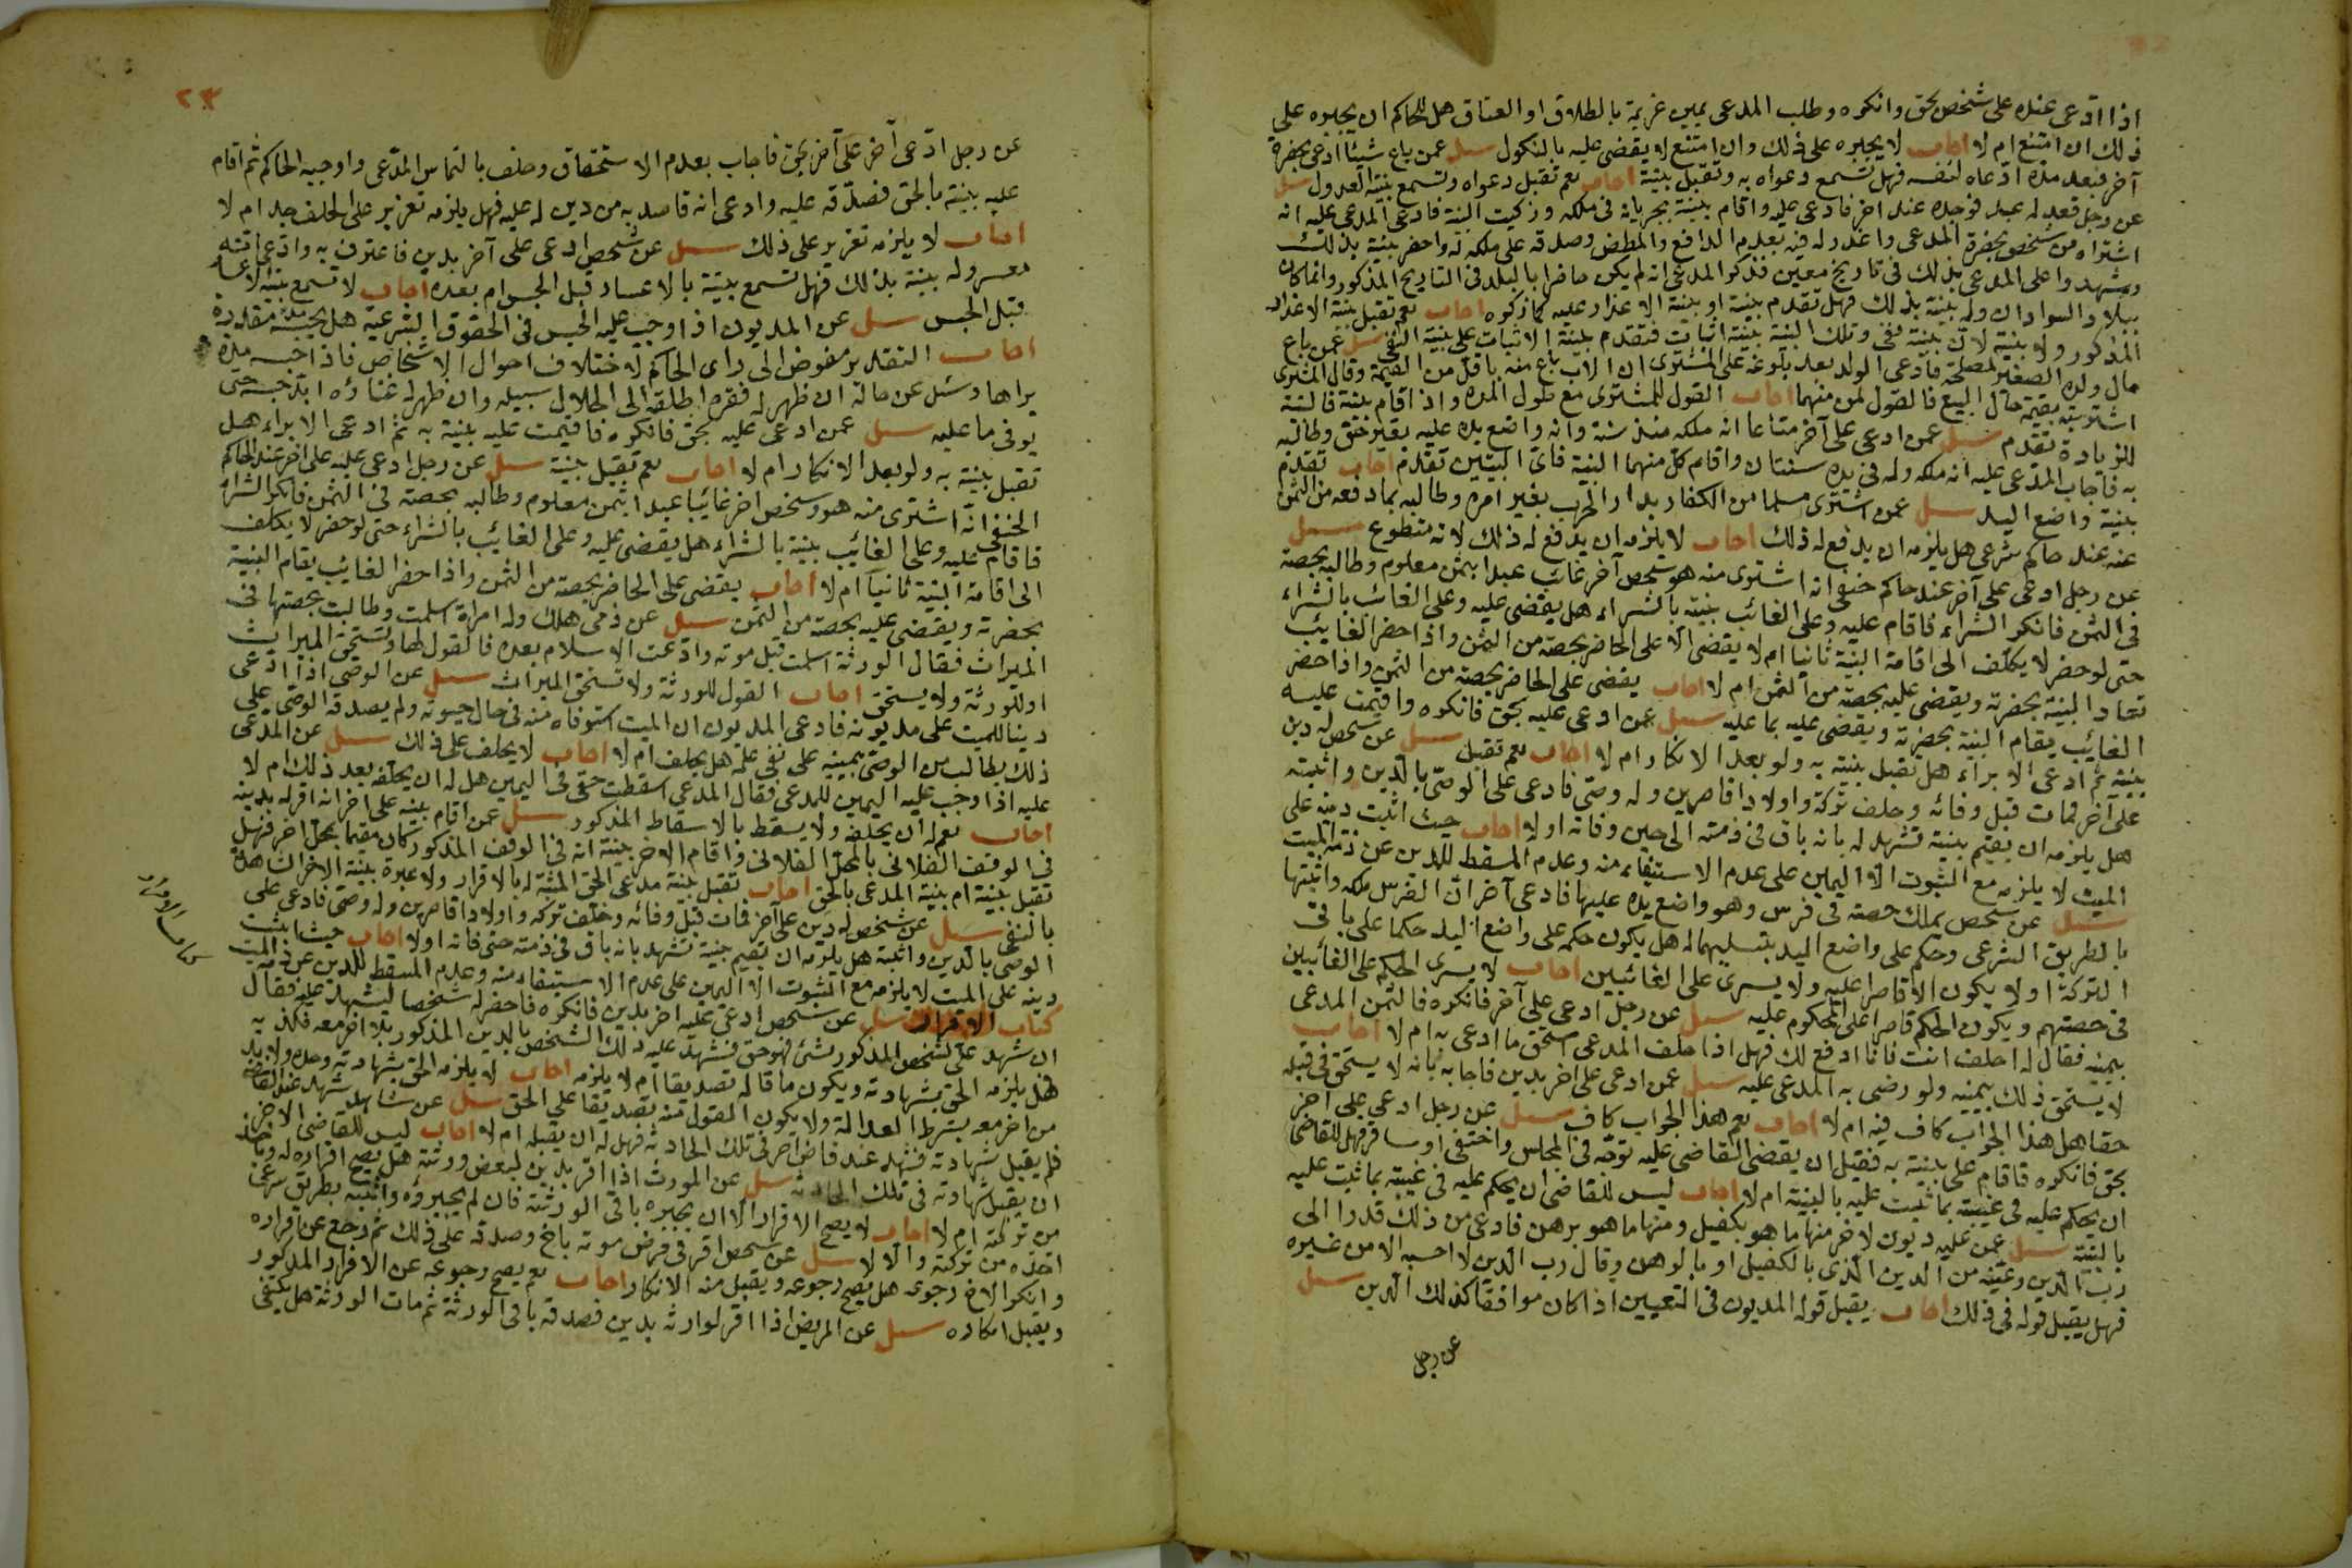 اذا ادعى عنده على شخص بحق وانكره وطلب المدعى يمين غريمه بالطلاق او العتاق هل للحاكم ان يجبره على
ذلك ان امتنع ام لا اجاب لا يجبره على ذلك وان امتنع لا يقضى عليه بالنكول سئل عمن باع شيئا ادعى بحضرة
آخر فبعد مدة ادعاه لنفسه فهل تسمع دعواه به وتقبل بينة اجاب نعم تقبل دعواه وتسمع بينته العدول سئل
عن رجل فقد له عبد فوجده عند اخر فادعى عليه واقام بينة بجريانه فى ملكه وزكيت البينة فادعى المدعى عليه انه
اشتراه من شخص بحضرة المدعى واعذر له فيه بعدم الدافع والمطعن وصدقه على ملكه له واحضر بينة بذلك
وشهدوا على المدعى بذلك فى تاريخ معين فذكر المدعى انه لم يكن حاضرا بالبلد فى التاريخ المذكور وانما كان
ببلاد السودان وله بينة بذلك فهل تقدم بينة او بينة الاعذار عليه كما ذكره اجاب نعم تقبل بينة الاعذار
المذكور ولا بينة لان بينة نفى وتلك البينة بينة اثبات فتقدم بينة الاثبات على بينة النفى سئل عمن باع
مال ولده الصغير لمصلحة فادعى الولد بعد بلوغه على المشترى ان الاب باع منه باقل من القيمة وقال المشترى
اشتريته بقيمة حال البيع فالقول لمن منهما اجاب القول للمشترى مع طول المدة واذا اقام بينة فالبينة
للزيادة تقدم سئل عمن ادعى على آخر متاعا انه ملكه منذ سنة وانه واضع يده عليه بغير حق وطالبه
به فاجاب المدعى عليه انه ملكه وله فى يده سنتان واقام كل منهما البينة فاى البينتين تقدم اجاب تقدم
بينة واضع اليد سئل عمن اشترى مسلما من الكفار بدار الحرب بغير امره وطالبه بما دفعه من الثمن
عنه عند حاكم شرعى هل يلزمه ان يدفع له ذلك اجاب لا يلزمه ان يدفع له ذلك لانه متطوع سئل
عن رجل ادعى على آخر عند حاكم حنفى انه اشترى منه هو وشخص آخر غائب عبدا بثمن معلوم وطالبه بحصته
فى الثمن فانكر الشراء فاقام عليه وعلى الغائب بينة بالشراء هل يقضى عليه وعلى الغائب بالشراء
حتى لو حضر لا يكلف الى اقامة البينة ثانيا ام لا يقضى الا على الحاضر بحصته من الثمن واذا حضر الغايب
تعاد البينة بحضرته ويقضى عليه بحصته من الثمن ام لا اجاب يقضى على الحاضر بحصته من الثمن واذا حضر
الغايب يقام البينة بحضرته ويقضى عليه بما عليه سئل عمن ادعى عليه بحق فانكره واقيمت عليه
بينة ثم ادعى الابراء هل تقبل بينته به ولو بعد الانكار ام لا اجاب نعم تقبل سئل عن شخص له دين
على آخر فمات قبل وفائه وخلف تركة واولادا قاصرين وله وصى فادعى على الوصى بالدين واثبته
هل يلزمه ان يقيم بينة تشهد له بانه باق فى ذمته الى حين وفاته او لا اجاب حيث اثبت دينه على
الميت لا يلزمه مع الثبوت الا اليمين على عدم الاستيفاء منه وعدم المسقط للدين عن ذمة الميت
سئل عن شخص يملك حصته فى فرس وهو واضع يده عليها فادعى آخر ان الفرس ملكه واثبتها
بالطريق الشرعى وحكم على واضع اليد بتسليمها له هل يكون حكمه على واضع اليد حكما على باقى
التركة او لا يكون الا قاصرا عليه ولا يسرى على الغائبين اجاب لا يسرى الحكم على الغائبين
فى حصتهم ويكون الحكم قاصرا على المحكوم عليه سئل عن رجل ادعى على آخر فانكره فالتمس المدعى
يمينه فقال له احلف انت فانا ادفع لك فهل اذا حلف المدعى استحق ما ادعى به ام لا اجاب
لا يستحق ذلك بيمينه ولو رضى به المدعى عليه سئل عمن ادعى على اخر بدين فاجابه بانه لا يستحق فى قبله
حقا هل هذا الجواب كاف فيه ام لا اجاب نعم هذا الجواب كاف سئل عن رجل ادعى على اخر
بحق فانكره فاقام على بينة به فقبل ان يقضى القاضى عليه توجه فى المجلس واختفى او سافر فهل للقاضى
ان يحكم عليه فى غيبته بما ثبت عليه بالبينة ام لا اجاب ليس للقاضى ان يحكم عليه فى غيبته بما ثبت عليه
بالبينة سئل عمن عليه ديون لاخر منها ما هو بكفيل ومنها ما هو برهن فادعى من ذلك قدرا الى
رب الدين وعينه من الدين الذى بالكفيل او بالرهن وقال رب الدين لا احسبه الا من غيره
فهل يقبل قوله فى ذلك اجاب يقبل قوله المديون فى التعيين اذا كان موافقا كذلك الدين سئل
عن رجل
٢٣
عن رجل ادعى آخر على آخر بحق فاجاب بعدم الاستحقاق وحلف بالتماس المدعى واوجبه الحاكم ثم اقام
عليه بينة بالحق فصدقه عليه وادعى انه قاصد به من دين له عليه فهل يلزمه تعزير على الحلف جدام لا
اجاب لا يلزمه تعزير على ذلك سئل عن شخص ادعى على آخر بدين فاعترف به وادعى انه
معسر وله بينة بذلك فهل تسمع بينة بالاعسار قبل الحبس ام بعده اجاب لا تسمع بينة الاعسار
قبل الحبس سئل عن المديون اذا وجب عليه الحبس فى الحقوق الشرعية هل يحبسه مدة مقدرة
اجاب التقدير مفوض الى راى الحاكم لاختلاف احوال الاشخاص فاذا حبسه مدة
يراها وسئل عن حاله ان ظهر له فقره اطلقه الى الحلال سبيله وان ظهر له غناؤه ابد حبسه حتى
يوفى ما عليه سئل عمن ادعى عليه بحق فانكره فاقيمت عليه بينة به ثم ادعى الابراء هل
تقبل بينة به ولو بعد الانكار ام لا اجاب نعم تقبل بينة سئل عن رجل ادعى عليه على اخر عند الحاكم
الحنفى انه اشترى منه هو وشخص اخر غائبا عبدا بثمن معلوم وطالبه بحصته فى الثمن فانكر الشراء
فاقام عليه وعلى الغائب بينة بالشراء هل يقضى عليه وعلى الغائب بالشراء حتى لو حضر لا يكلف
الى اقامة البينة ثانيا ام لا اجاب يقضى على الحاضر بحصته من الثمن واذا حضر الغايب يقام البينة
بحضرته ويقضى عليه بحصته من الثمن سئل عن ذمى هلك وله امراة اسلمت وطالبت بحصتها فى
الميراث فقال الورثة اسلمت قبل موته وادعت الاسلام بعده فالقول لها وتستحق الميراث
او للورثة ولا يستحق اجاب القول للورثة ولا تستحق الميراث سئل عن الوصى اذا ادعى
دينا للميت على مديونه فادعى المديون ان الميت استوفاه منه فى حال حيوته ولم يصدقه الوصى على
ذلك يطالب من الوصى يمينه على نفى علمه هل يحلف ام لا اجاب لا يحلف على ذلك سئل عن المدعى
عليه اذا وجب عليه اليمين للمدعى فقال المدعى اسقطت حقى فى اليمين هل له ان يحلفه بعد ذلك ام لا
اجاب نعم له ان يحلفه ولا يسقط بالاسقاط المذكور سئل عمن اقام بينة على اخر انه اقر له بدينه
فى الوقت الفلانى بالمحل الفلانى فاقام الاخر بينة انه فى الوقت المذكور كان مقيما بمحل اخر فهل
تقبل بينة ام بينة المدعى بالحق اجاب تقبل بينة مدعى الحق المثبتة له بالاقرار ولا عبرة ببينة الاخر
بالنفى سئل عن شخص له دين على آخر فمات قبل وفائه وخلف تركة واولادا قاصرين وله وصى فادعى على
الوصى بالدين واثبته هل يلزمه ان يقيم بينة تشهد بانه باق فى ذمته حتى فاته او لا اجاب حيث اثبت
دينه على الميت لا يلزمه مع الثبوت الا اليمين على عدم الاستيفاء منه وعدم المسقط للدين عن ذمة الميت
كتاب الاقرار سئل عن شخص ادعى عليه اخر بدين فانكره فاحضر له شخصا ليشهد عليه فقال
ان شهد على الشخص المذكور بشئ فهو حق فشهد عليه ذلك الشخص بالدين المذكور بلا اخر معه فكذبه
فهل يلزمه الحق بشهادته ويكون ما قاله تصديقا ام لا يلزمه اجاب لا يلزمه الحق بشهادته وحده ولا بد
من اخر معه بشرط العدالة ولا يكون القول منه تصديقا على الحق سئل عن شاهد شهد عند القاضى
فلم يقبل شهادته فشهد عند قاض آخر فى تلك الحادثة فهل له ان يقبله ام لا اجاب ليس للقاضى الاخر
ان يقبل شهادته فى تلك الحادثة سئل عن المورث اذا اقر بدين لبعض ورثته هل يصح اقراره له وياخذ
من تركته ام لا اجاب لا يصح الاقرار الا ان يجيزه باقى الورثة فان لم يجيزوه واثبته بطريق شرعى
اخذه من تركته والا لا سئل عن شخص اقر فى مرض موته باخ وصدقه على ذلك ثم رجع عن اقراره
وانكر الاخ رجوعه هل يصح رجوعه ويقبل منه الانكار اجاب نعم يصح رجوعه عن الاقرار المذكور
ويقبل انكاره سئل عن المريض اذا اقر لوارثه بدين فصدقه باقى الورثة ثم مات الورثة هل يكتفى
كتاب الاقرار